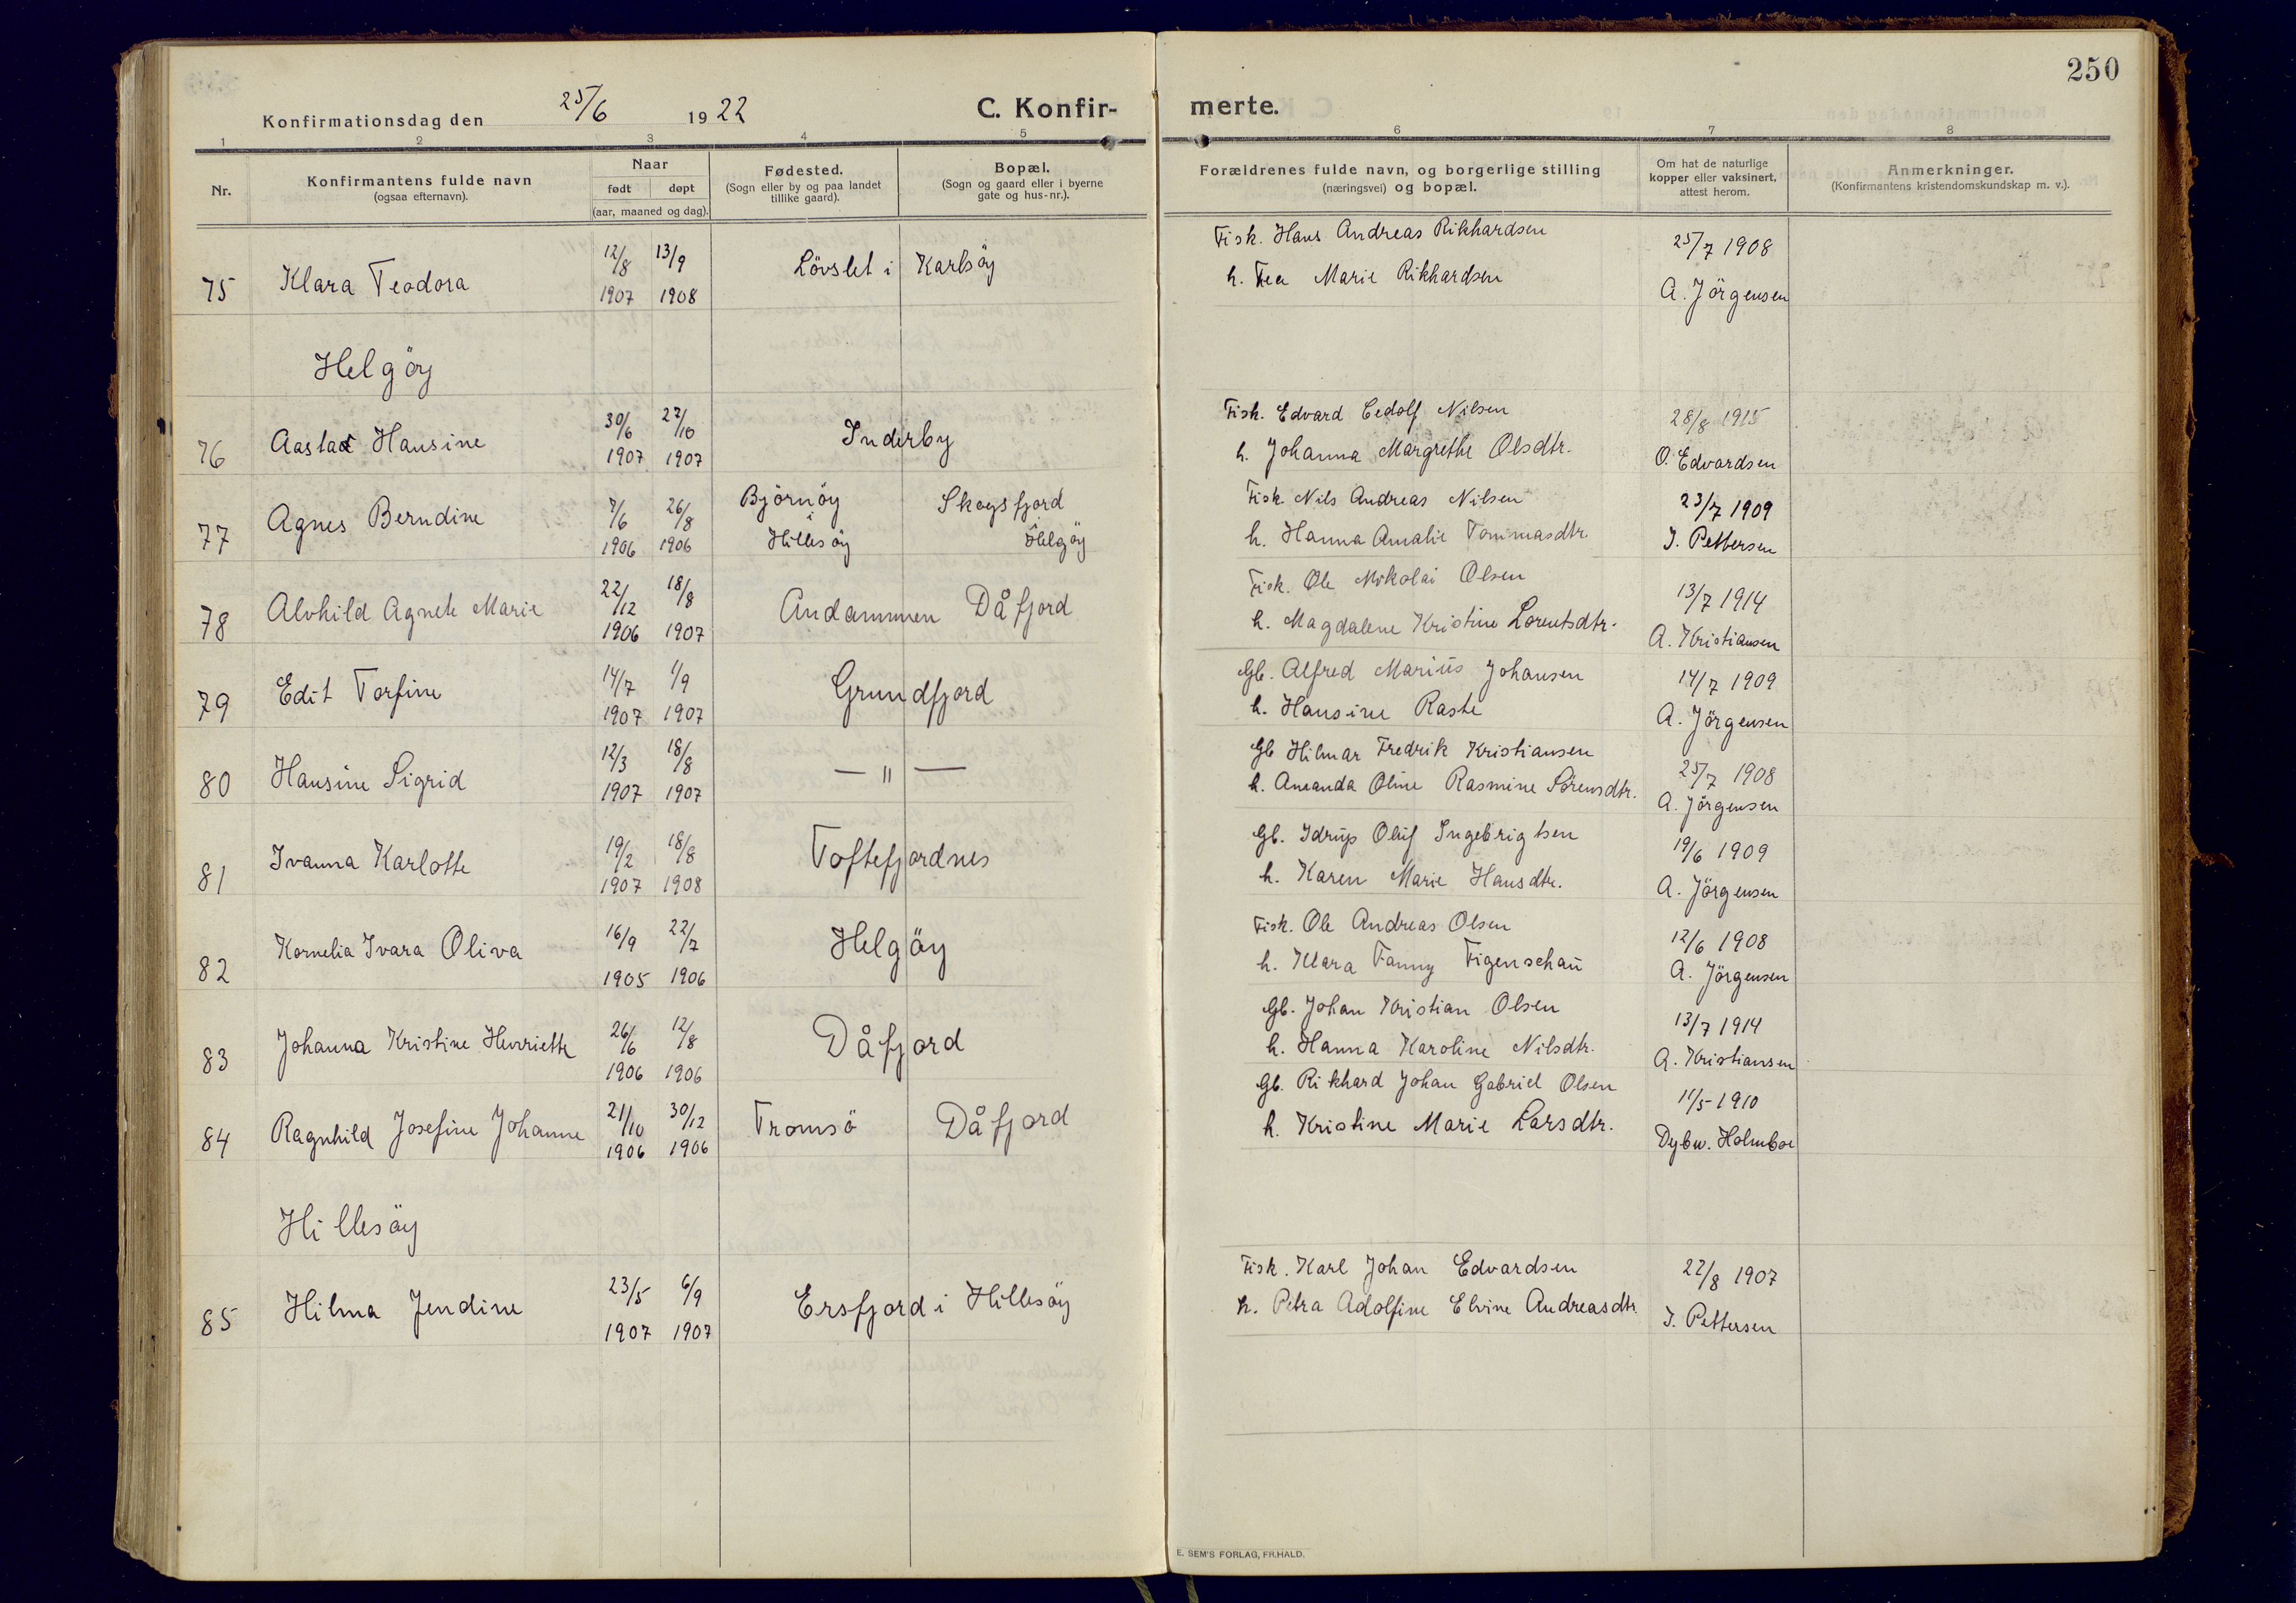 250
Konfirmationsdag den 25/6 1922 C. Konfir- merte.
1 2 3 4 5 6 7 8
Nr.
Konfirmantens fulde navn
(ogsaa efternavn).
Naar
født døpt
(aar, maaned og dag).
Fødested.
(Sogn eller by og paa landet
tillike gaard).
Bopæl.
(Sogn og gaard eller i byerne
gate og hus-nr.).
Forældrenes fulde navn, og borgerlige stilling
(næringsvei) og bopæl.
Om hat de naturlige
kopper eller vaksinert,
attest herom.
Anmerkninger.
(Konfirmantens kristendomskundskap m. v.).
75 Klara Teodora 12/8 1907 13/9 1908 Lövslet i Karlsöy
Fisk. Hans Andreas Rikhardsen 25/7 1908
h. Tea Marie Rikhardsen A. Jörgensen
Helgöy
76 Aasta Hansine 30/6 1907 27/10 1907 Inderby
Fisk. Edvard Cedolf Nilsen 28/8 1915
h. Johanna Margrethe Olsdtr. O. Edvardsen
77 Agnes Berndine 7/6 1906 26/8 1906 Björnöy i Hillesöy Skogsfjord Helgöy
Fisk. Nils Andreas Nilsen 23/7 1909
h. Hanna Amalie Tommasdtr. J. Pettersen
78 Alvhild Agnete Marie 22/12 1906 18/8 1907 Andammen Dåfjord
Fisk. Ole Nikolai Olsen 13/7 1914
h. Magdalene Kristine Lorentsdtr. A. Kristiansen
79 Edit Torfine 14/7 1907 1/9 1907 Grundfjord
Gb. Alfred Marius Johansen 14/7 1909
h. Hansine Raste A. Jörgensen
80 Hansine Sigrid 12/3 1907 18/8 1907 — " —
Gb Hilmar Fredrik Kristiansen 25/7 1908
h. Amanda Oline Rasmine Sörensdtr. A. Jörgensen
81 Ivanna Karlotte 19/2 1907 18/8 1908 Toftefjordnes
Gb. Idrup Oluf Ingebrigtsen 19/6 1909
h. Karen Marie Hansdtr. A. Jörgensen
82 Kornelia Ivara Oliva 16/9 1905 22/7 1906 Helgöy
Fisk. Ole Andreas Olsen 12/6 1908
h. Klara Fanny Figenschau A. Jörgensen
83 Johanna Kristine Henriette 26/6 1906 12/8 1906 Dåfjord
Gb. Johan Kristian Olsen 13/7 1914
h. Hanna Karoline Nilsdtr. A. Kristiansen
84 Ragnhild Josefine Johanne 21/10 1906 30/12 1906 Tromsö Dåfjord
Gb. Rikhard Johan Gabriel Olsen 11/5 1910
h. Kristine Marie Larsdtr. Dybw. Holmboe
Hillesöy
85 Hilma Jendine 23/5 1907 6/9 1907 Ersfjord i Hillesöy
Fisk. Karl Johan Edvardsen 22/8 1907
h. Petra Adolfine Elvine Andreasdtr. J. Pettersen
E. SEM'S FORLAG, FR.HALD.